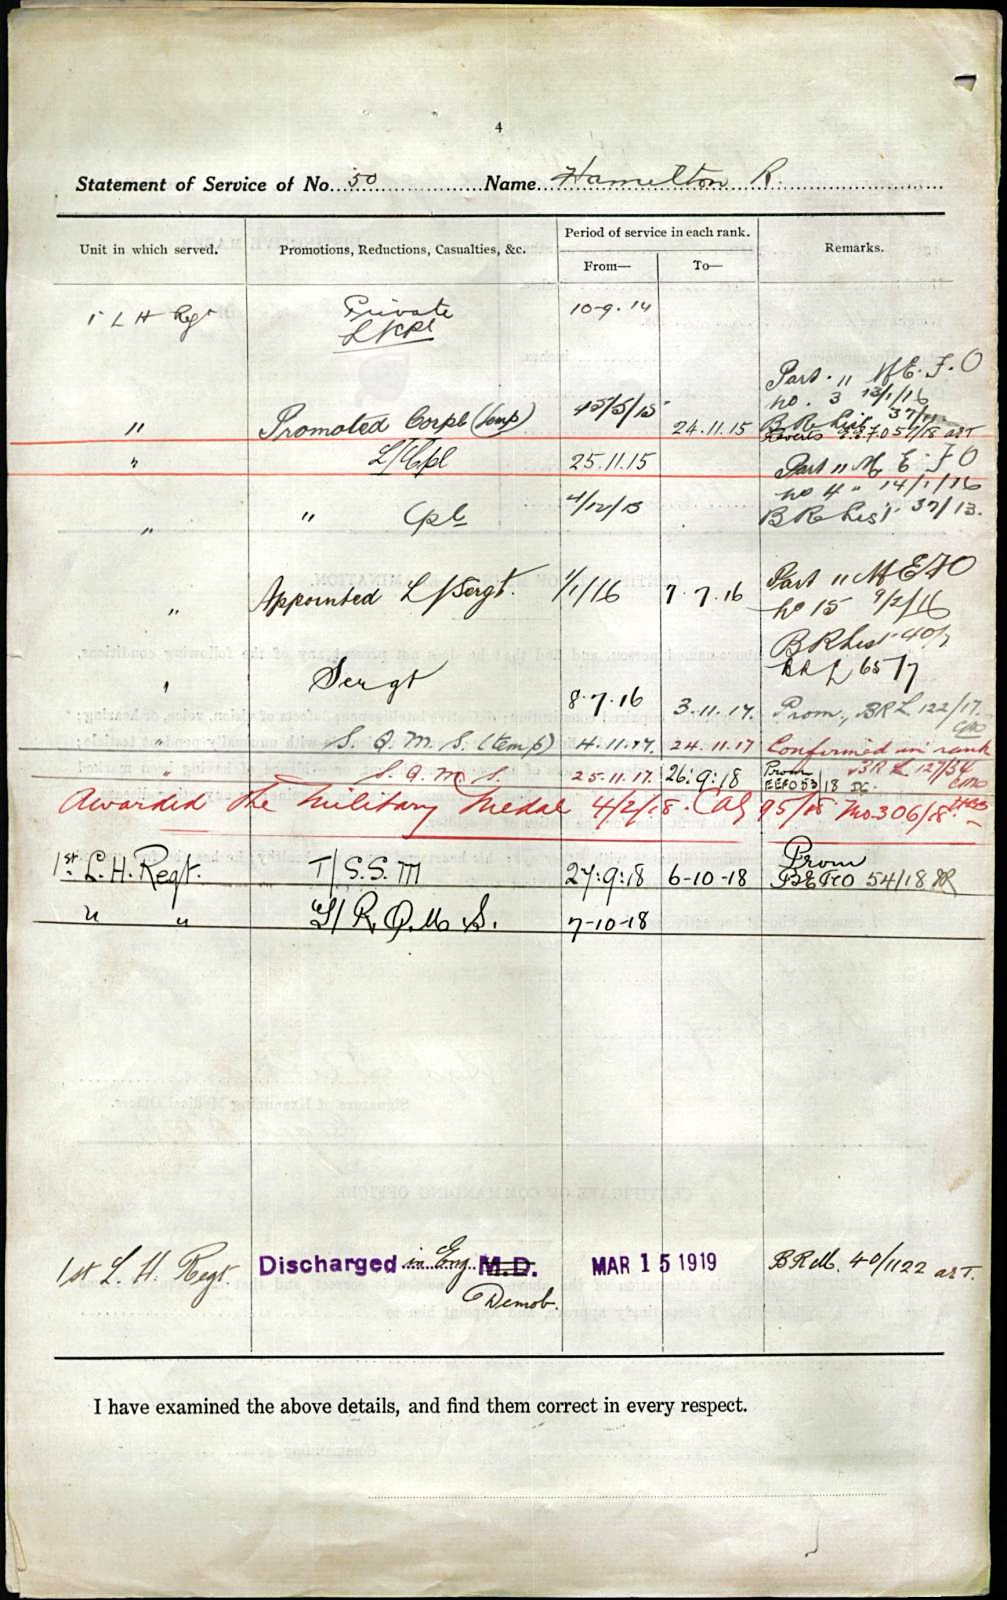 4
Statement of Service of No. 50 Name Hamelton R.
Unit in which served. Promotions, Reductions, Casualties, &c. Period of service in each rank. Remarks.
From— To—
1 L H Regt Private 10-9.14
L/Cpl
Part. " M E. F. O
no. 3 13/1/16
" Promoted Corpl (temp) 15/5/15 24.11.15 B R List 37/11
Reverts
" L/Cpl 25.11.15 Part " M E F O
no 4 " 14/1/16
" " Cpl 4/12/15 B R List 37/13.
" Appointed L/Sergt. 1/1/16 7.7.16 Part " M E F O
no 15 9/2/16
B R List 40/7
" Sergt 8.7.16 3.11.17. B R L 65/7
Prom, B R L 122/17.
" S. Q. M. S. (temp) 4.11.17. 24.11.17 Confirmed in rank
" S. Q. M. S. 25.11.17. 26:9:18 Prom B R L 127/34
EEFO 53/18 DG.
Awarded the Military Medal 4/2/18. CAG 95/18 MO306/18
1st L. H. Regt. T/S.S.M 27:9:18 6-10-18 Prom
54/18
" " T/R.Q.M.S. 7-10-18
1st L. H. Regt. Discharged in Eng. M.D. MAR 15 1919 B R M. 40/1122 asT.
Demob.
I have examined the above details, and find them correct in every respect.